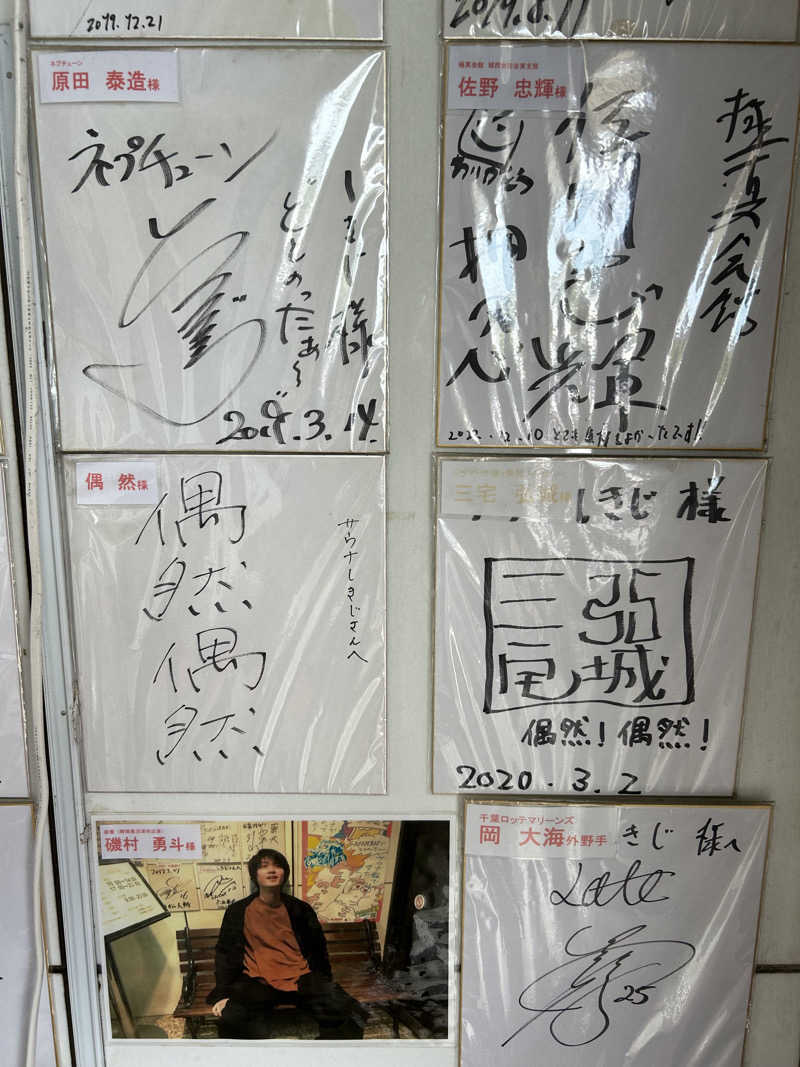 2019.12.21
2019.8.11
ネプチューン
原田 泰造様
ネプチューン
しきじ様
ととのったぁ〜
2019.3.14.
佐野 忠輝様
ありがとう
押忍
極真会館
2022.12.10 とても気持ちよかったです!!
偶然様
偶然
偶然
サウナしきじさんへ
三宅 弘城様
しきじ 様
三宅
弘城
偶然!偶然!
2020.3.2
磯村 勇斗様
千葉ロッテマリーンズ
岡 大海外野手
きじ 様へ
Lotte
25